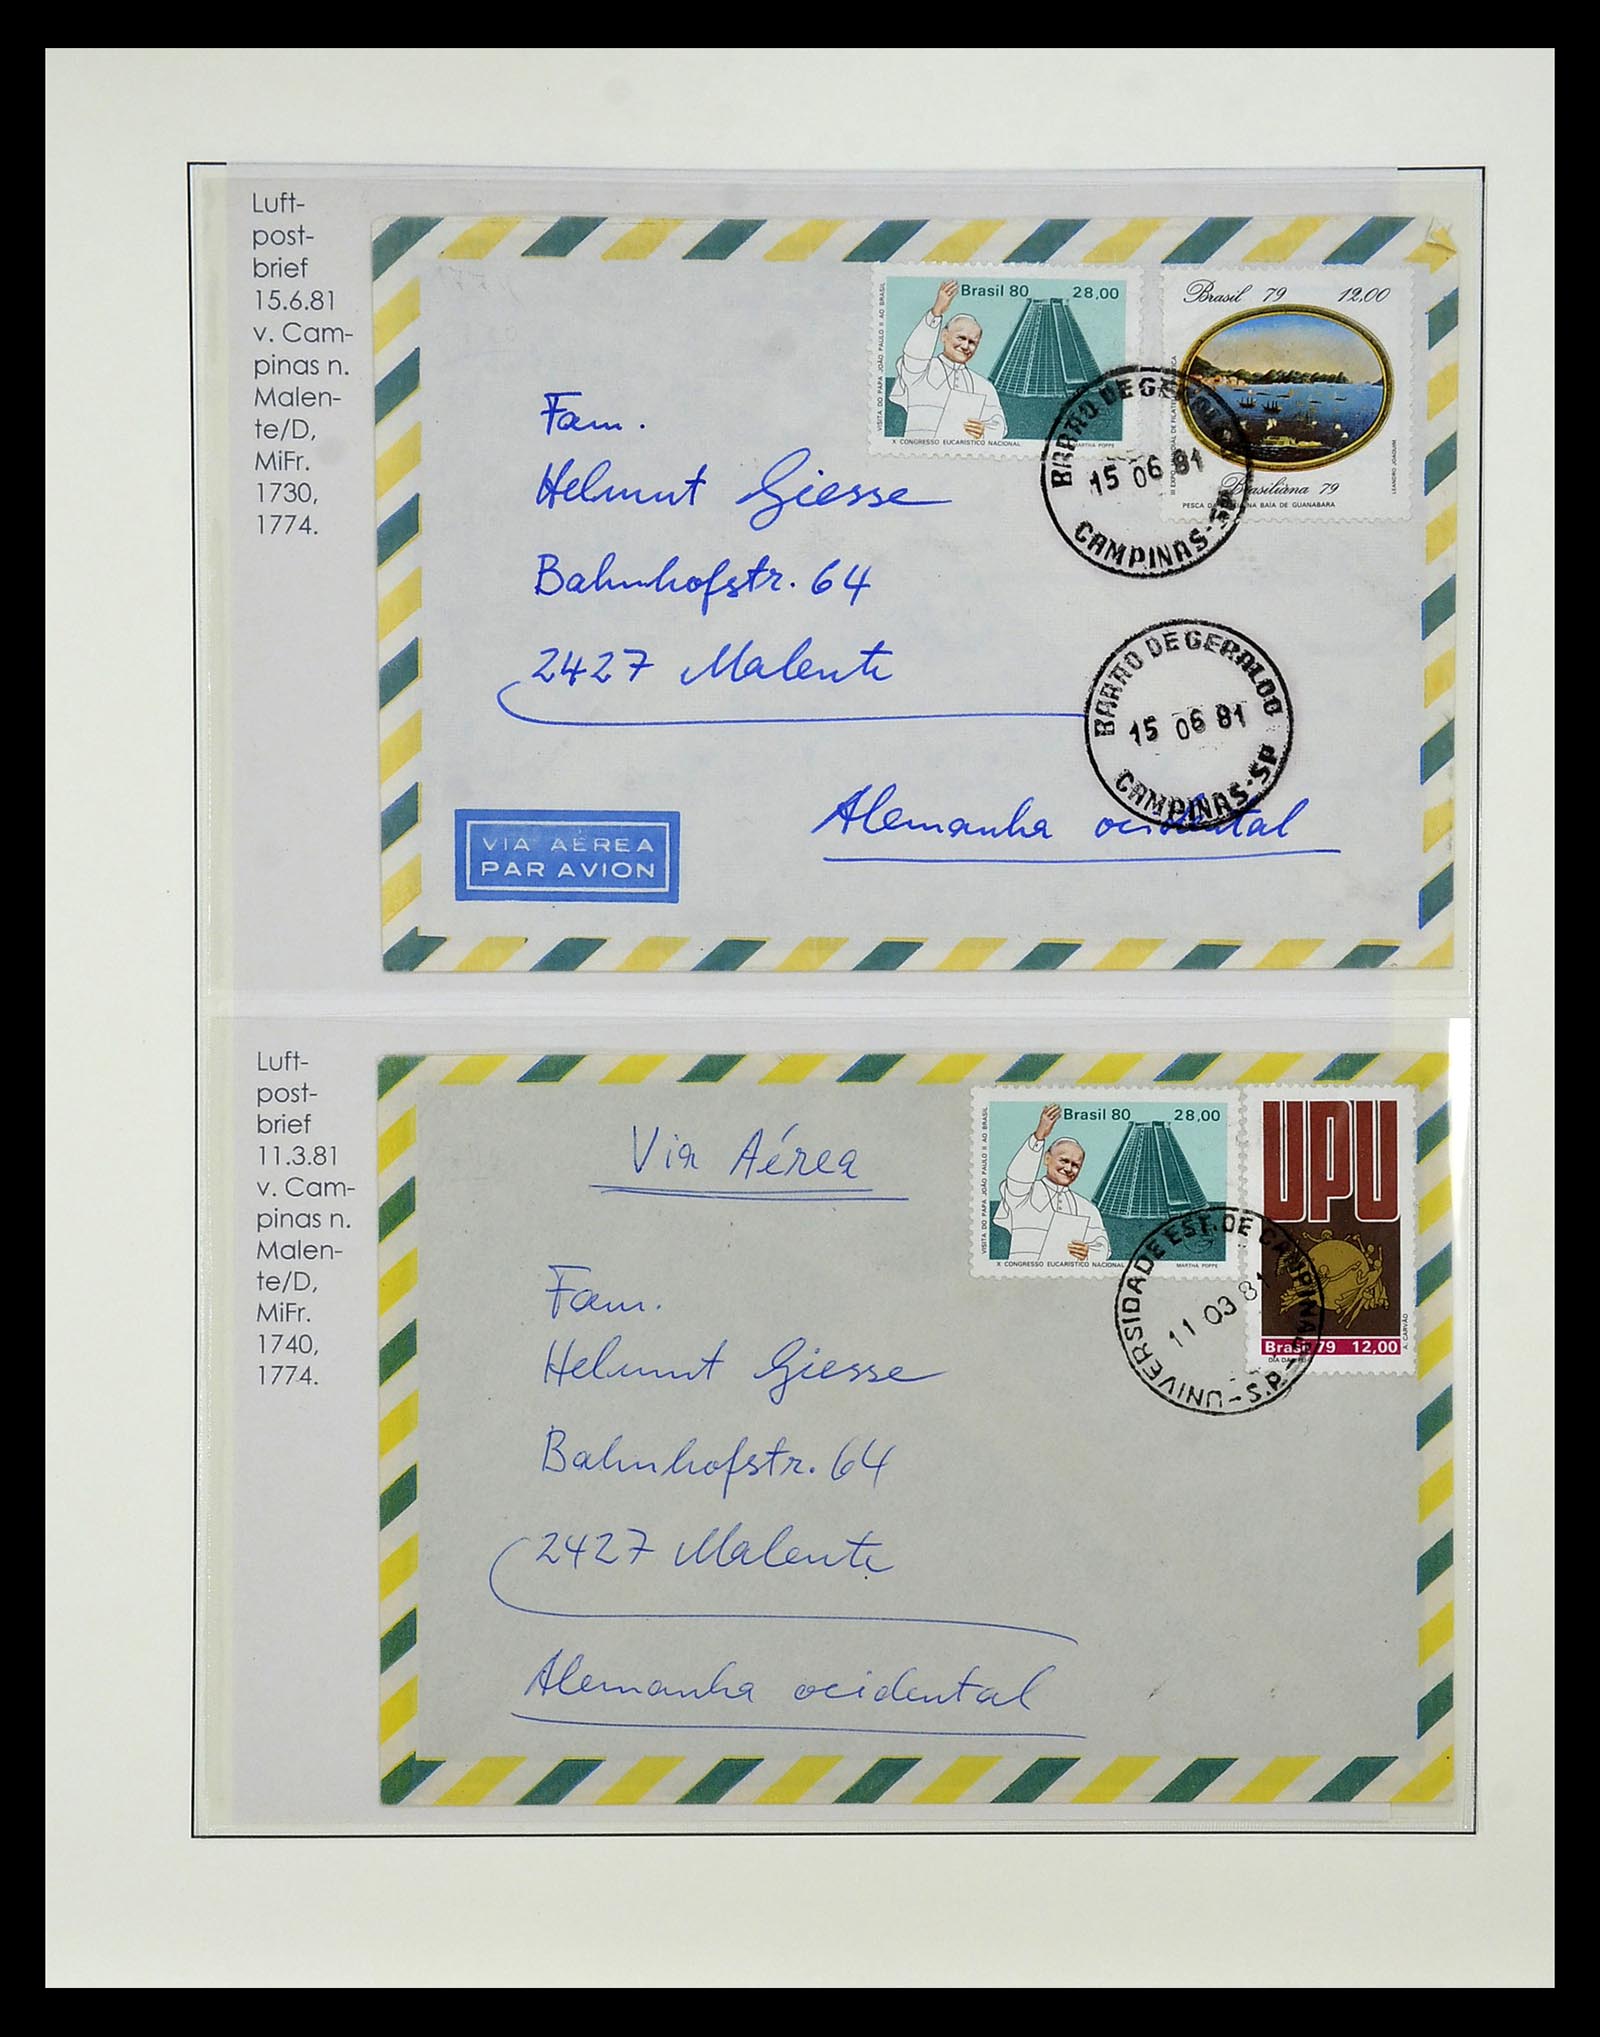 Luft-
post-
brief
15.6.81
v. Cam-
pinas n.
Malen-
te/D,
MiFr.
1730,
1774.
Brasil 80 28,00
VISITA DO PAPA JOÃO PAULO II AO BRASIL
X CONGRESSO EUCARÍSTICO NACIONAL
MARTHA POPPE
Brasil 79 12,00
LEANDRO JOAQUIM
Brasiliana 79
PESCA DA BALEIA NA BAÍA DE GUANABARA
BARÃO DE GERALDO
15 06 81
CAMPINAS-SP
Fam.
Helmut Giesse
Bahnhofstr. 64
2427 Malente
Alemanha ocidental
BARÃO DE GERALDO
15 06 81
CAMPINAS-SP
VIA AÉREA
PAR AVION
Luft-
post-
brief
11.3.81
v. Cam-
pinas n.
Malen-
te/D,
MiFr.
1740,
1774.
Via Aérea
Brasil 80 28,00
VISITA DO PAPA JOÃO PAULO II AO BRASIL
X CONGRESSO EUCARÍSTICO NACIONAL
MARTHA POPPE
UPU
Brasil 79 12,00
A. CARVÃO
UNIVERSIDADE EST. DE CAMPINAS-S.P.-
11 03 81
Fam.
Helmut Giesse
Bahnhofstr. 64
2427 Malente
Alemanha ocidental